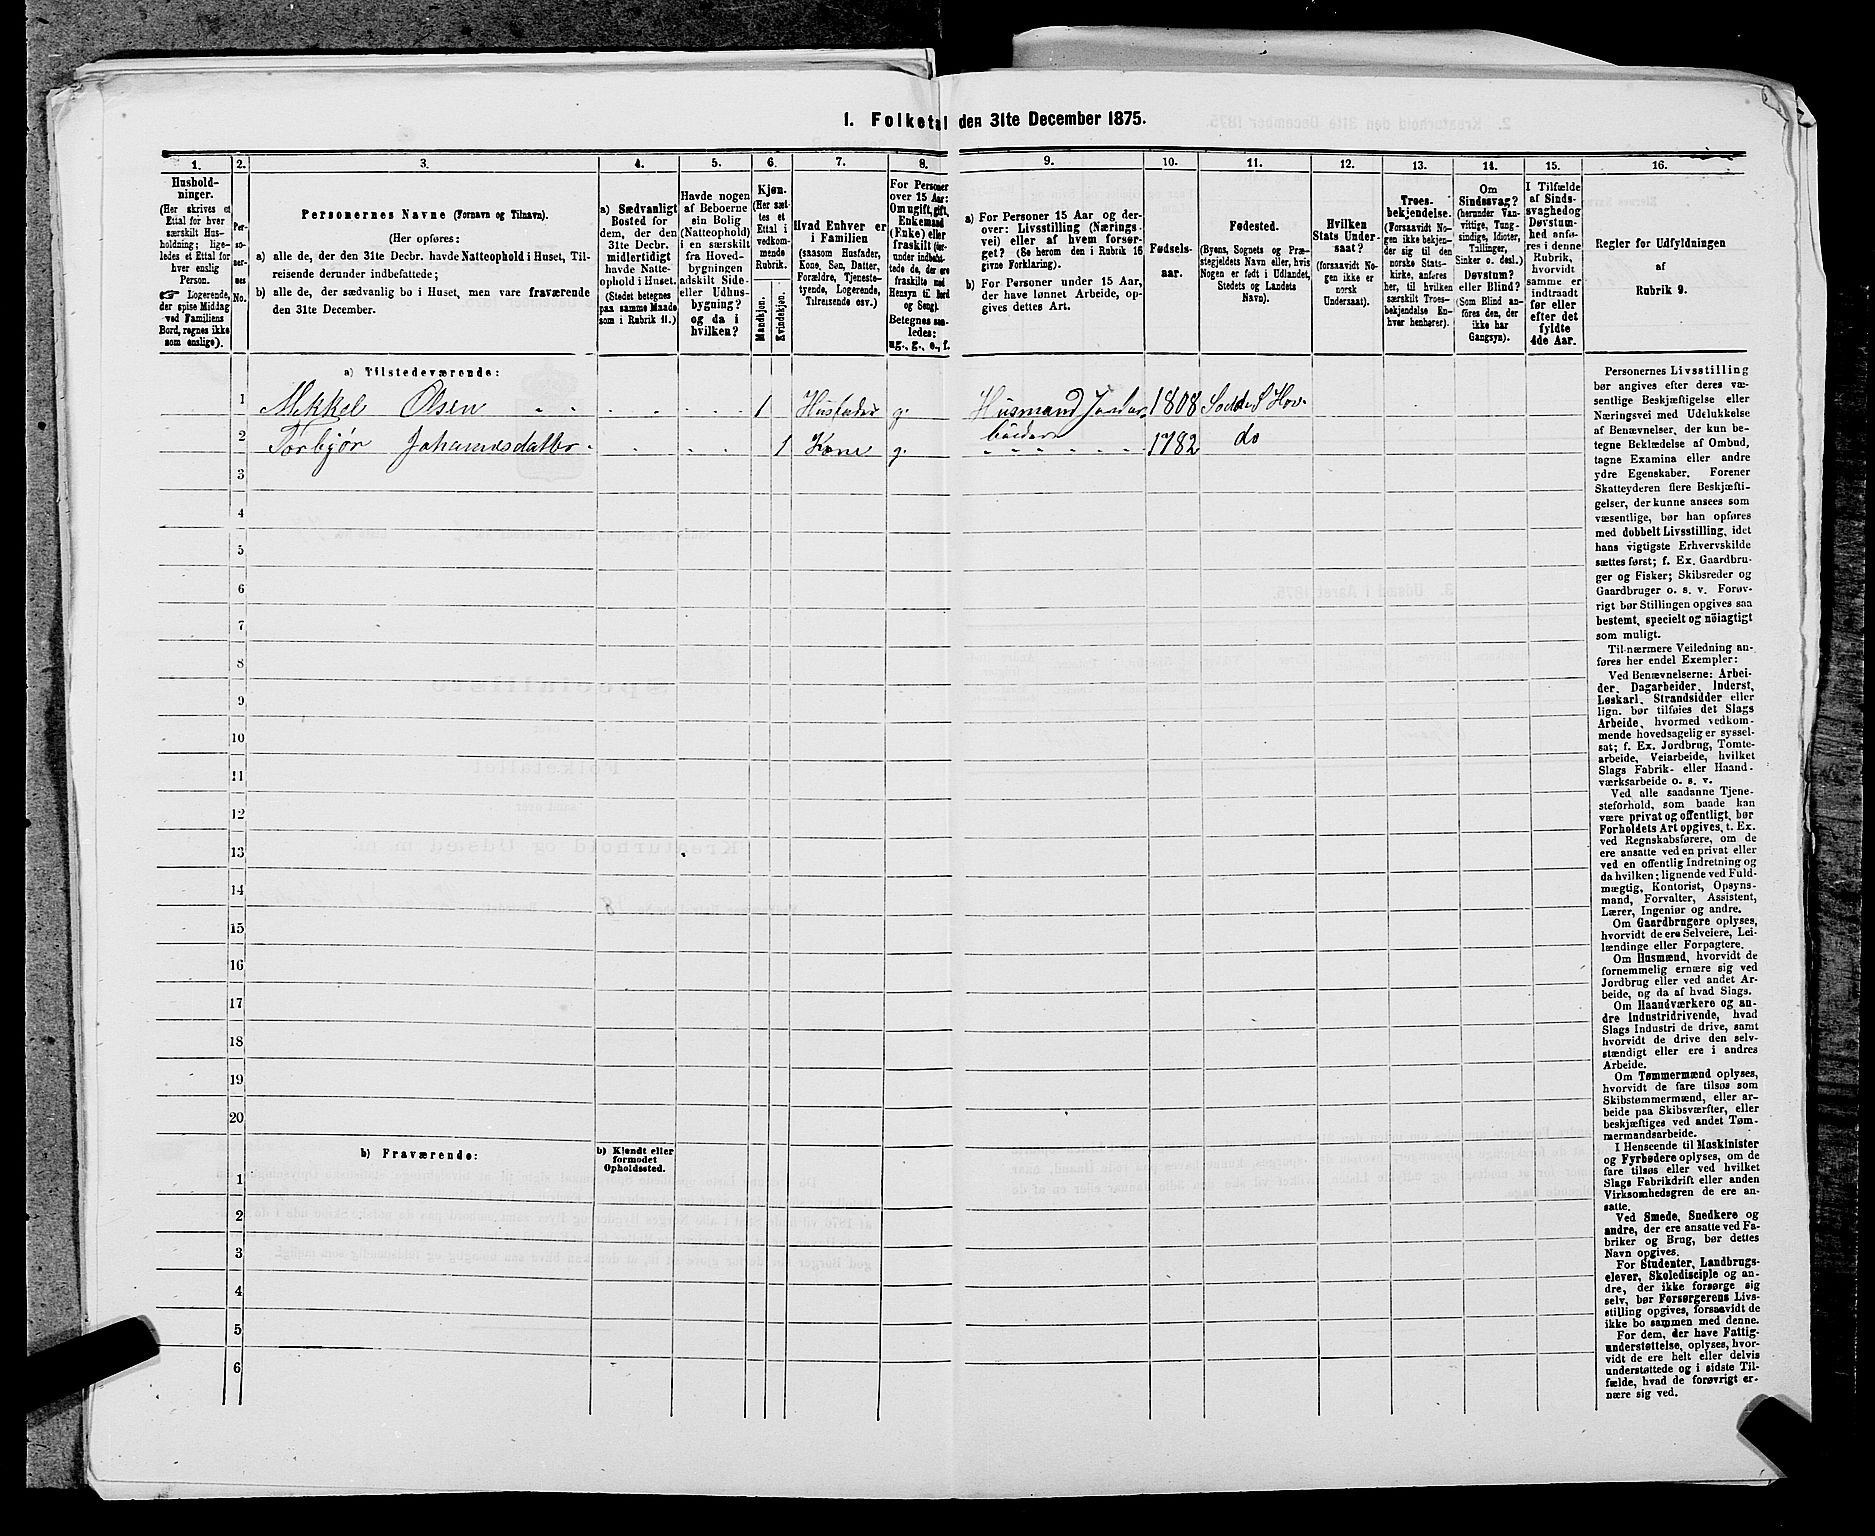 1. Folketal den 31te December 1875.
1.
Hushold-
ninger.
(Her skrives et
Ettal for hver
særskilt Hus-
holdning; lige-
ledes et Ettal for
hver enslig
Person.
☞ Logerende,
der spise Middag
ved Familiens
Bord, regnes ikke
som enslige).
2.
Per-
so-
ner-
nes
No.
3.
Personernes Navne (Fornavn og Tilnavn).
(Her opføres:
a) alle de, der den 31te Decbr. havde Natteophold i Huset, Til-
reisende derunder indbefattede;
b) alle de, der sædvanlig bo i Huset, men vare fraværende
den 31te December.
4.
a) Sædvanligt
Bosted for
dem, der den
31te Decbr.
midlertidigt
havde Natte-
ophold i Huset.
(Stedet betegnes
paa samme Maade
som i Rubrik 11.)
5.
Havde nogen
af Beboerne
sin Bolig
(Natteophold)
i en særskilt
fra Hoved-
bygningen
adskilt Side-
eller Udhus-
bygning?
og da i
hvilken?
6.
Kjøn.
(Her sæt-
tes et
Ettal i
vedkom-
mende
Rubrik.
Mandkjøn.
Kvindekjøn.
7.
Hvad Enhver er
i Familien
(saasom Husfader,
Kone, Søn, Datter,
Forældre, Tjeneste-
tyende, Logerende,
Tilreisende osv.)
8.
For Personer
over 15 Aar:
Om ugift, gift,
Enkemand
(Enke) eller
fraskilt
Betegnes saa-
ledes:
ug., g., e., f.
9.
a) For Personer 15 Aar og der-
over: Livsstilling (Nærings-
vei) eller af hvem forsør-
get? (Se herom den i Rubrik 16
givne Forklaring).
b) For Personer under 15 Aar,
der have lønnet Arbeide, op-
gives dettes Art.
10.
Fødsels-
aar.
11.
Fødested.
(Byens, Sognets og Præ-
stegjeldets Navn eller, hvis
Nogen er født i Udlandet,
Stedets og Landets
Navn).
12.
Hvilken
Stats Under-
saat?
(forsaavidt No-
gen ikke er
norsk
Undersaat).
13.
Troes-
bekjendelse.
(Forsaavidt No-
gen ikke bekjen-
der sig til den
norske Stats-
kirke, anføres
her, til hvilken
særskilt Troes-
bekjendelse En-
hver henhører).
14.
Om
Sindssvag?
(herunder Van-
vittige, Tung-
sindige, Idioter,
Tullinger,
Sinker o. desl.)
Døvstum?
eller Blind?
(Som Blind an-
føres den, der
ikke har
Gangsyn).
15.
I Tilfælde
af Sinds-
svaghed og
Døvstum-
hed anfø-
res i denne
Rubrik,
hvorvidt
samme er
indtraadt
før eller
efter det
fyldte
4de Aar.
16.
Regler for Udfyldningen
af
Rubrik 9.
a) Tilstedeværende:
1 Mekkel Olsen 1 Husfader g. Husmand Jordar- 1808
beider
2 Torbjør Johannesdatter 1 Kone g. 1782 do
3
4
5
6
7
8
9
10
11
12
13
14
15
16
17
18
19
20
b) Fraværende:
b) Kjendt eller
formodet
Opholdssted.
1
2
3
4
5
6
Personernes Livsstilling
bør angives efter deres væ-
sentlige Beskjæftigelse eller
Næringsvei med Udelukkelse
af Benævnelser, der kun be-
tegne Beklædelse af Ombud,
tagne Examina eller andre
ydre Egenskaber. Forener
Skatteyderen flere Beskjæfti-
gelser, der kunne ansees som
væsentlige, bør han opføres
med dobbelt Livsstilling, idet
hans vigtigste Erhvervskilde
sættes først; f. Ex. Gaardbru-
ger og Fisker; Skibsreder og
Gaardbruger o. s. v. Forøv-
rigt bør Stillingen opgives saa
bestemt, specielt og nöiagtigt
som muligt.
Til nærmere Veiledning an-
føres her endel Exempler:
Ved Benævnelserne: Arbei-
der, Dagarbeider, Inderst,
Løskarl, Strandsidder eller
lign. bør tilføies det Slags
Arbeide, hvormed vedkom-
mende hovedsagelig er syssel-
sat; f. Ex. Jordbrug, Tomte-
arbeide, Veiarbeide, hvilket
Slags Fabrik- eller Haand-
værksarbeide o. s. v.
Ved alle saadanne Tjene-
steforhold, som baade kan
være privat og offentligt, bør
Forholdets Art opgives, t. Ex.
ved Regnskabsførere, om de
ere ansatte ved en privat eller
ved en offentlig Indretning og
da hvilken; lignende ved Fuld-
mægtig, Kontorist, Opsyns-
mand, Forvalter, Assistent,
Lærer, Ingeniør og andre.
Om Gaardbrugere oplyses,
hvorvidt de ere Selveiere, Lei-
lændinge eller Forpagtere.
Om Husmænd, hvorvidt de
fornemmelig ernære sig ved
Jordbrug eller ved andet Ar-
beide, og da af hvad Slags.
Om Haandværkere og an-
dre Industridrivende, hvad
Slags Industri de drive, samt
hvorvidt de drive den selv-
stændigt eller ere i andres
Arbeide.
Om Tømmermænd oplyses,
hvorvidt de fare tilsøs som
Skibstømmermænd, eller ar-
beide paa Skibsværfter, eller
beskjæftiges ved andet Tøm-
mermandsarbeide.
I Henseende til Maskinister
og Fyrbødere oplyses, om de
fare tilsøs eller ved hvilket
Slags Fabrikdrift eller anden
Virksomhedsgren de ere an-
satte.
Ved Smede, Snedkere og
andre, der ere ansatte ved Fa-
briker og Brug, bør dettes
Navn opgives.
For Studenter, Landbrugs-
elever, Skoledisciple og an-
dre, der ikke forsørge sig
selv, bør Forsørgerens Livs-
stilling opgives, forsaavidt de
ikke bo sammen med denne.
For dem, der have Fattig-
understøttelse, oplyses, hvor-
vidt de ere helt eller delvis
understøttede og i sidste Til-
fælde, hvad de forøvrigt er-
nære sig ved.